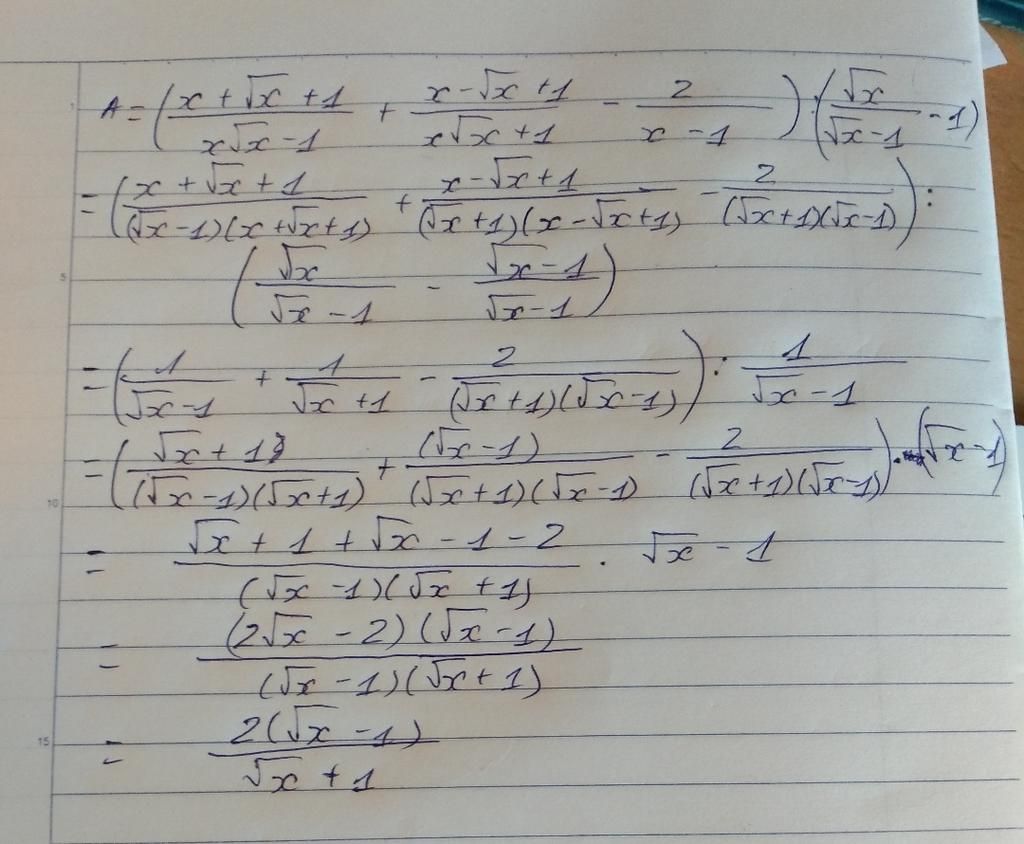 A = ( (x + √x + 1)/(x√x - 1) + (x - √x + 1)/(x√x + 1) - 2/(x - 1) ) : ( √x/(√x - 1) - 1 )
= ( (x + √x + 1)/((√x - 1)(x + √x + 1)) + (x - √x + 1)/((√x + 1)(x - √x + 1)) - 2/((√x + 1)(√x - 1)) ) :
( √x/(√x - 1) - (√x - 1)/(√x - 1) )
= ( 1/(√x - 1) + 1/(√x + 1) - 2/((√x + 1)(√x - 1)) ) : 1/(√x - 1)
= ( (√x + 1)/((√x - 1)(√x + 1)) + (√x - 1)/((√x + 1)(√x - 1)) - 2/((√x + 1)(√x - 1)) ) . (√x - 1)
= (√x + 1 + √x - 1 - 2)/((√x - 1)(√x + 1)) . √x - 1
= (2√x - 2)(√x - 1)/((√x - 1)(√x + 1))
= 2(√x - 1)/(√x + 1)